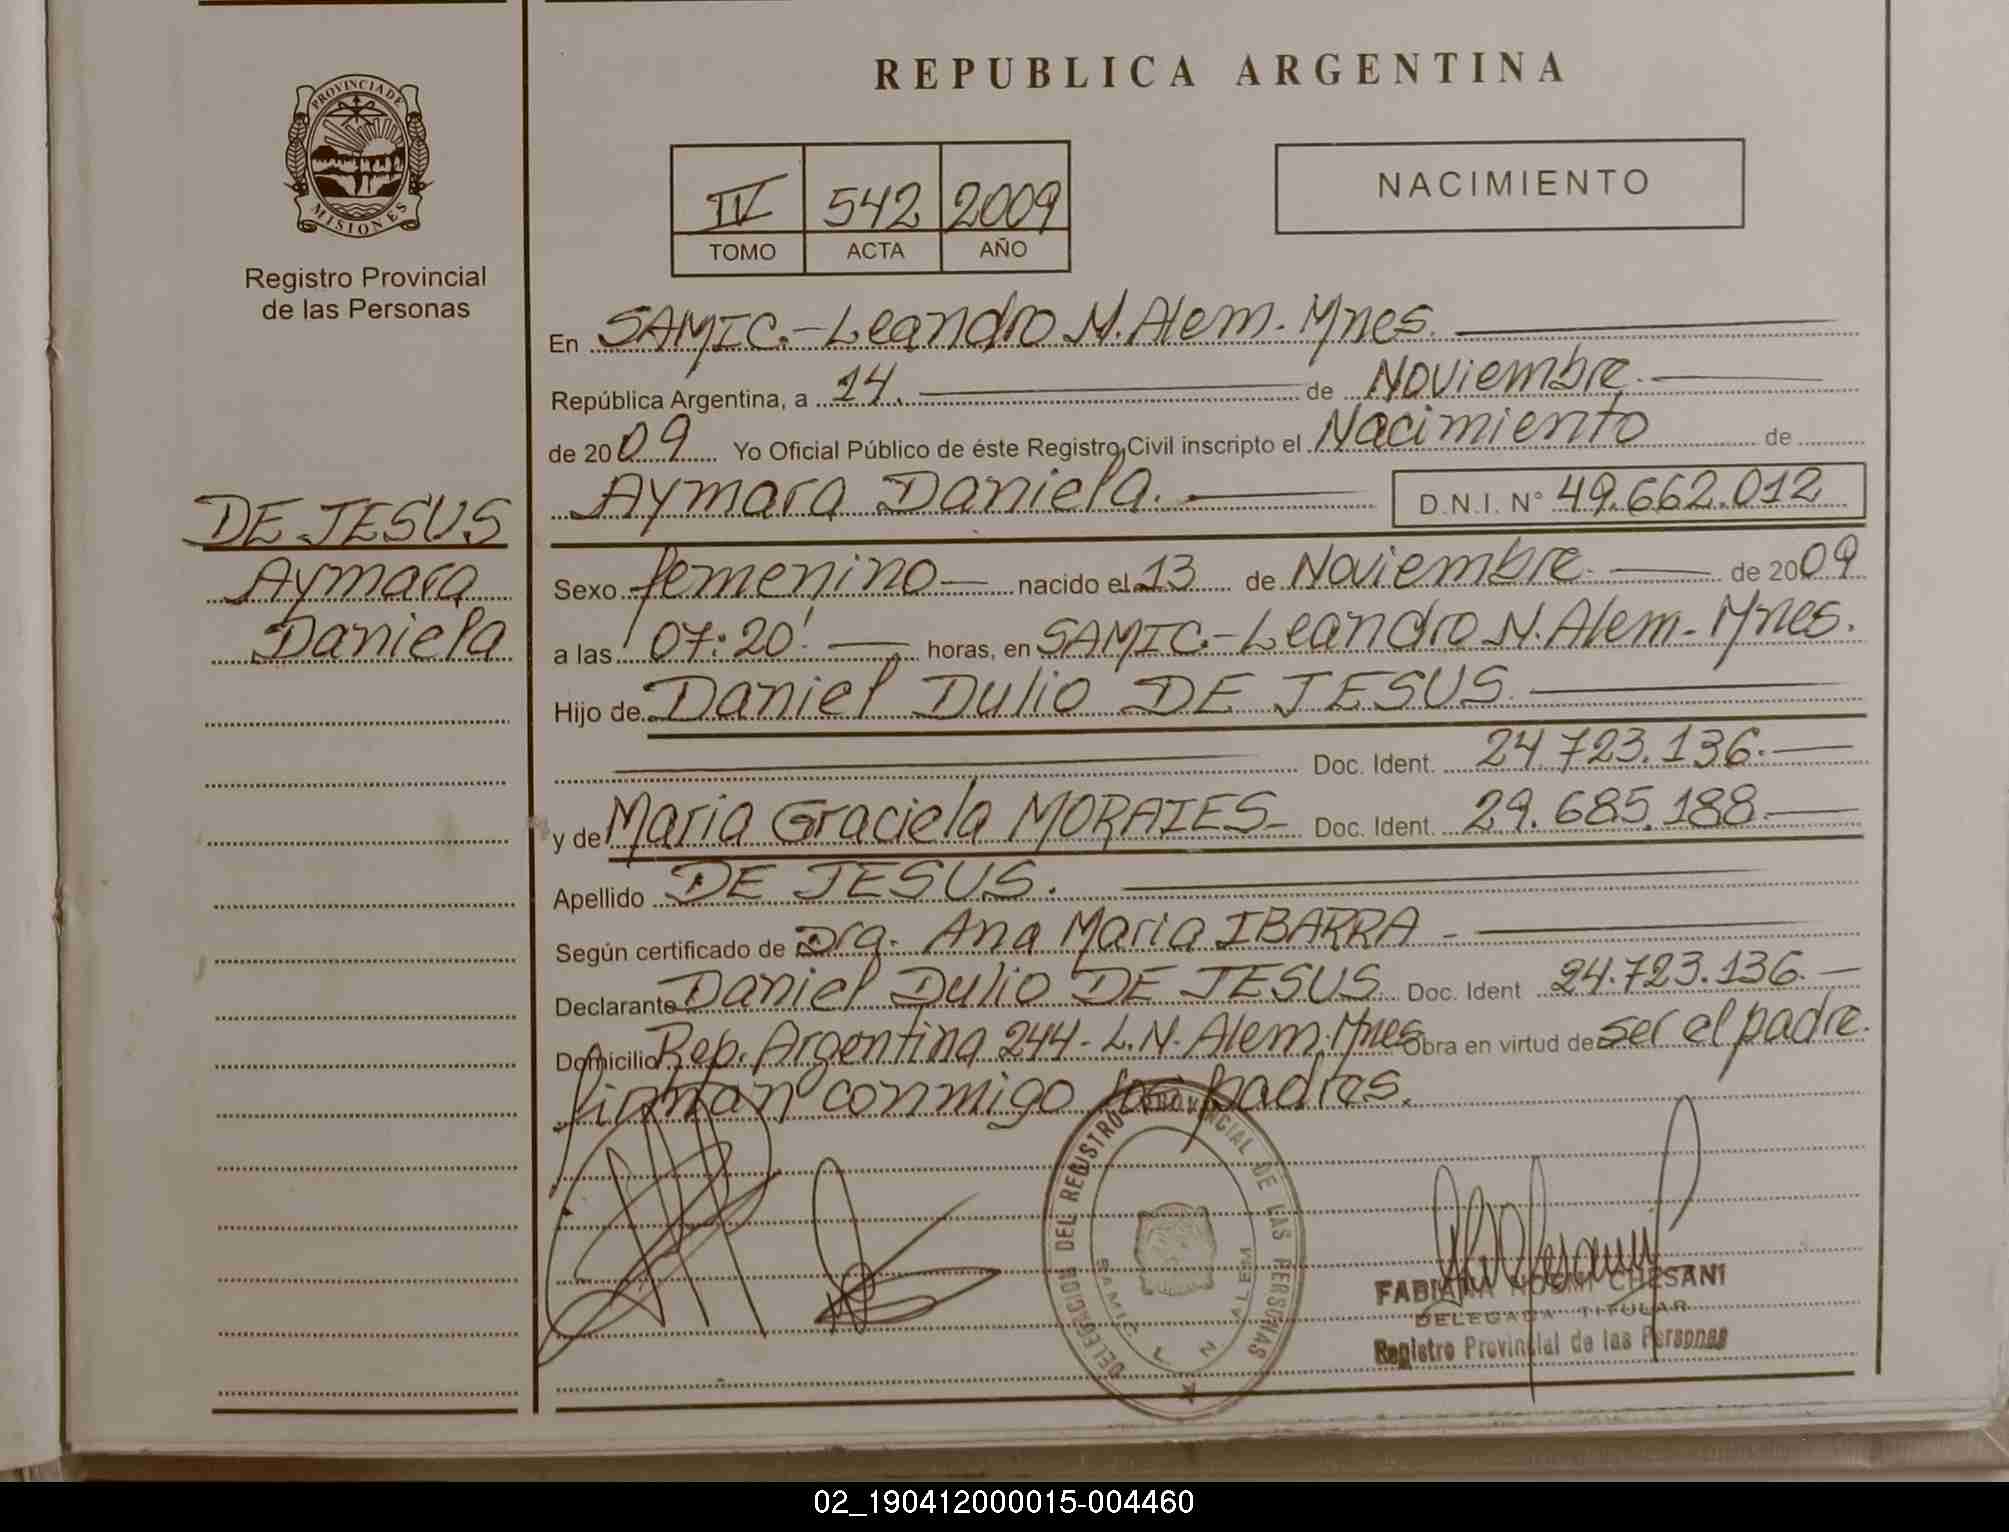 REPUBLICA ARGENTINA
PROVINCIA DE
MISIONES
Registro Provincial
de las Personas
IV 542 2009
TOMO ACTA AÑO
NACIMIENTO
En SAMIC.-Leandro N. Alem. Mnes.
República Argentina, a 14. de Noviembre.
de 2009 Yo Oficial Público de éste Registro Civil inscripto el Nacimiento de
Aymara Daniela. D.N.I. N° 49.662.012
DE JESUS
Aymara
Daniela
Sexo femenino nacido el 13 de Noviembre. de 2009
a las 07:20' horas, en SAMIC.-Leandro N. Alem. Mnes.
Hijo de Daniel Dulio DE JESUS.
Doc. Ident. 24.723.136.
y de Maria Graciela MORAIES Doc. Ident. 29.685.188
Apellido DE JESUS.
Según certificado de Dra. Ana Maria IBARRA
Declarante Daniel Dulio DE JESUS Doc. Ident 24.723.136.
Domicilio Rep. Argentina 244- L.N. Alem. Mnes Obra en virtud de ser el padre.
firman conmigo los padres.
DELEGACION DEL REGISTRO PROVINCIAL DE LAS PERSONAS
SAMIC L N ALEM
FABIANA NOEMI CHESANI
DELEGADA TITULAR
Registro Provincial de las Personas
02_190412000015-004460